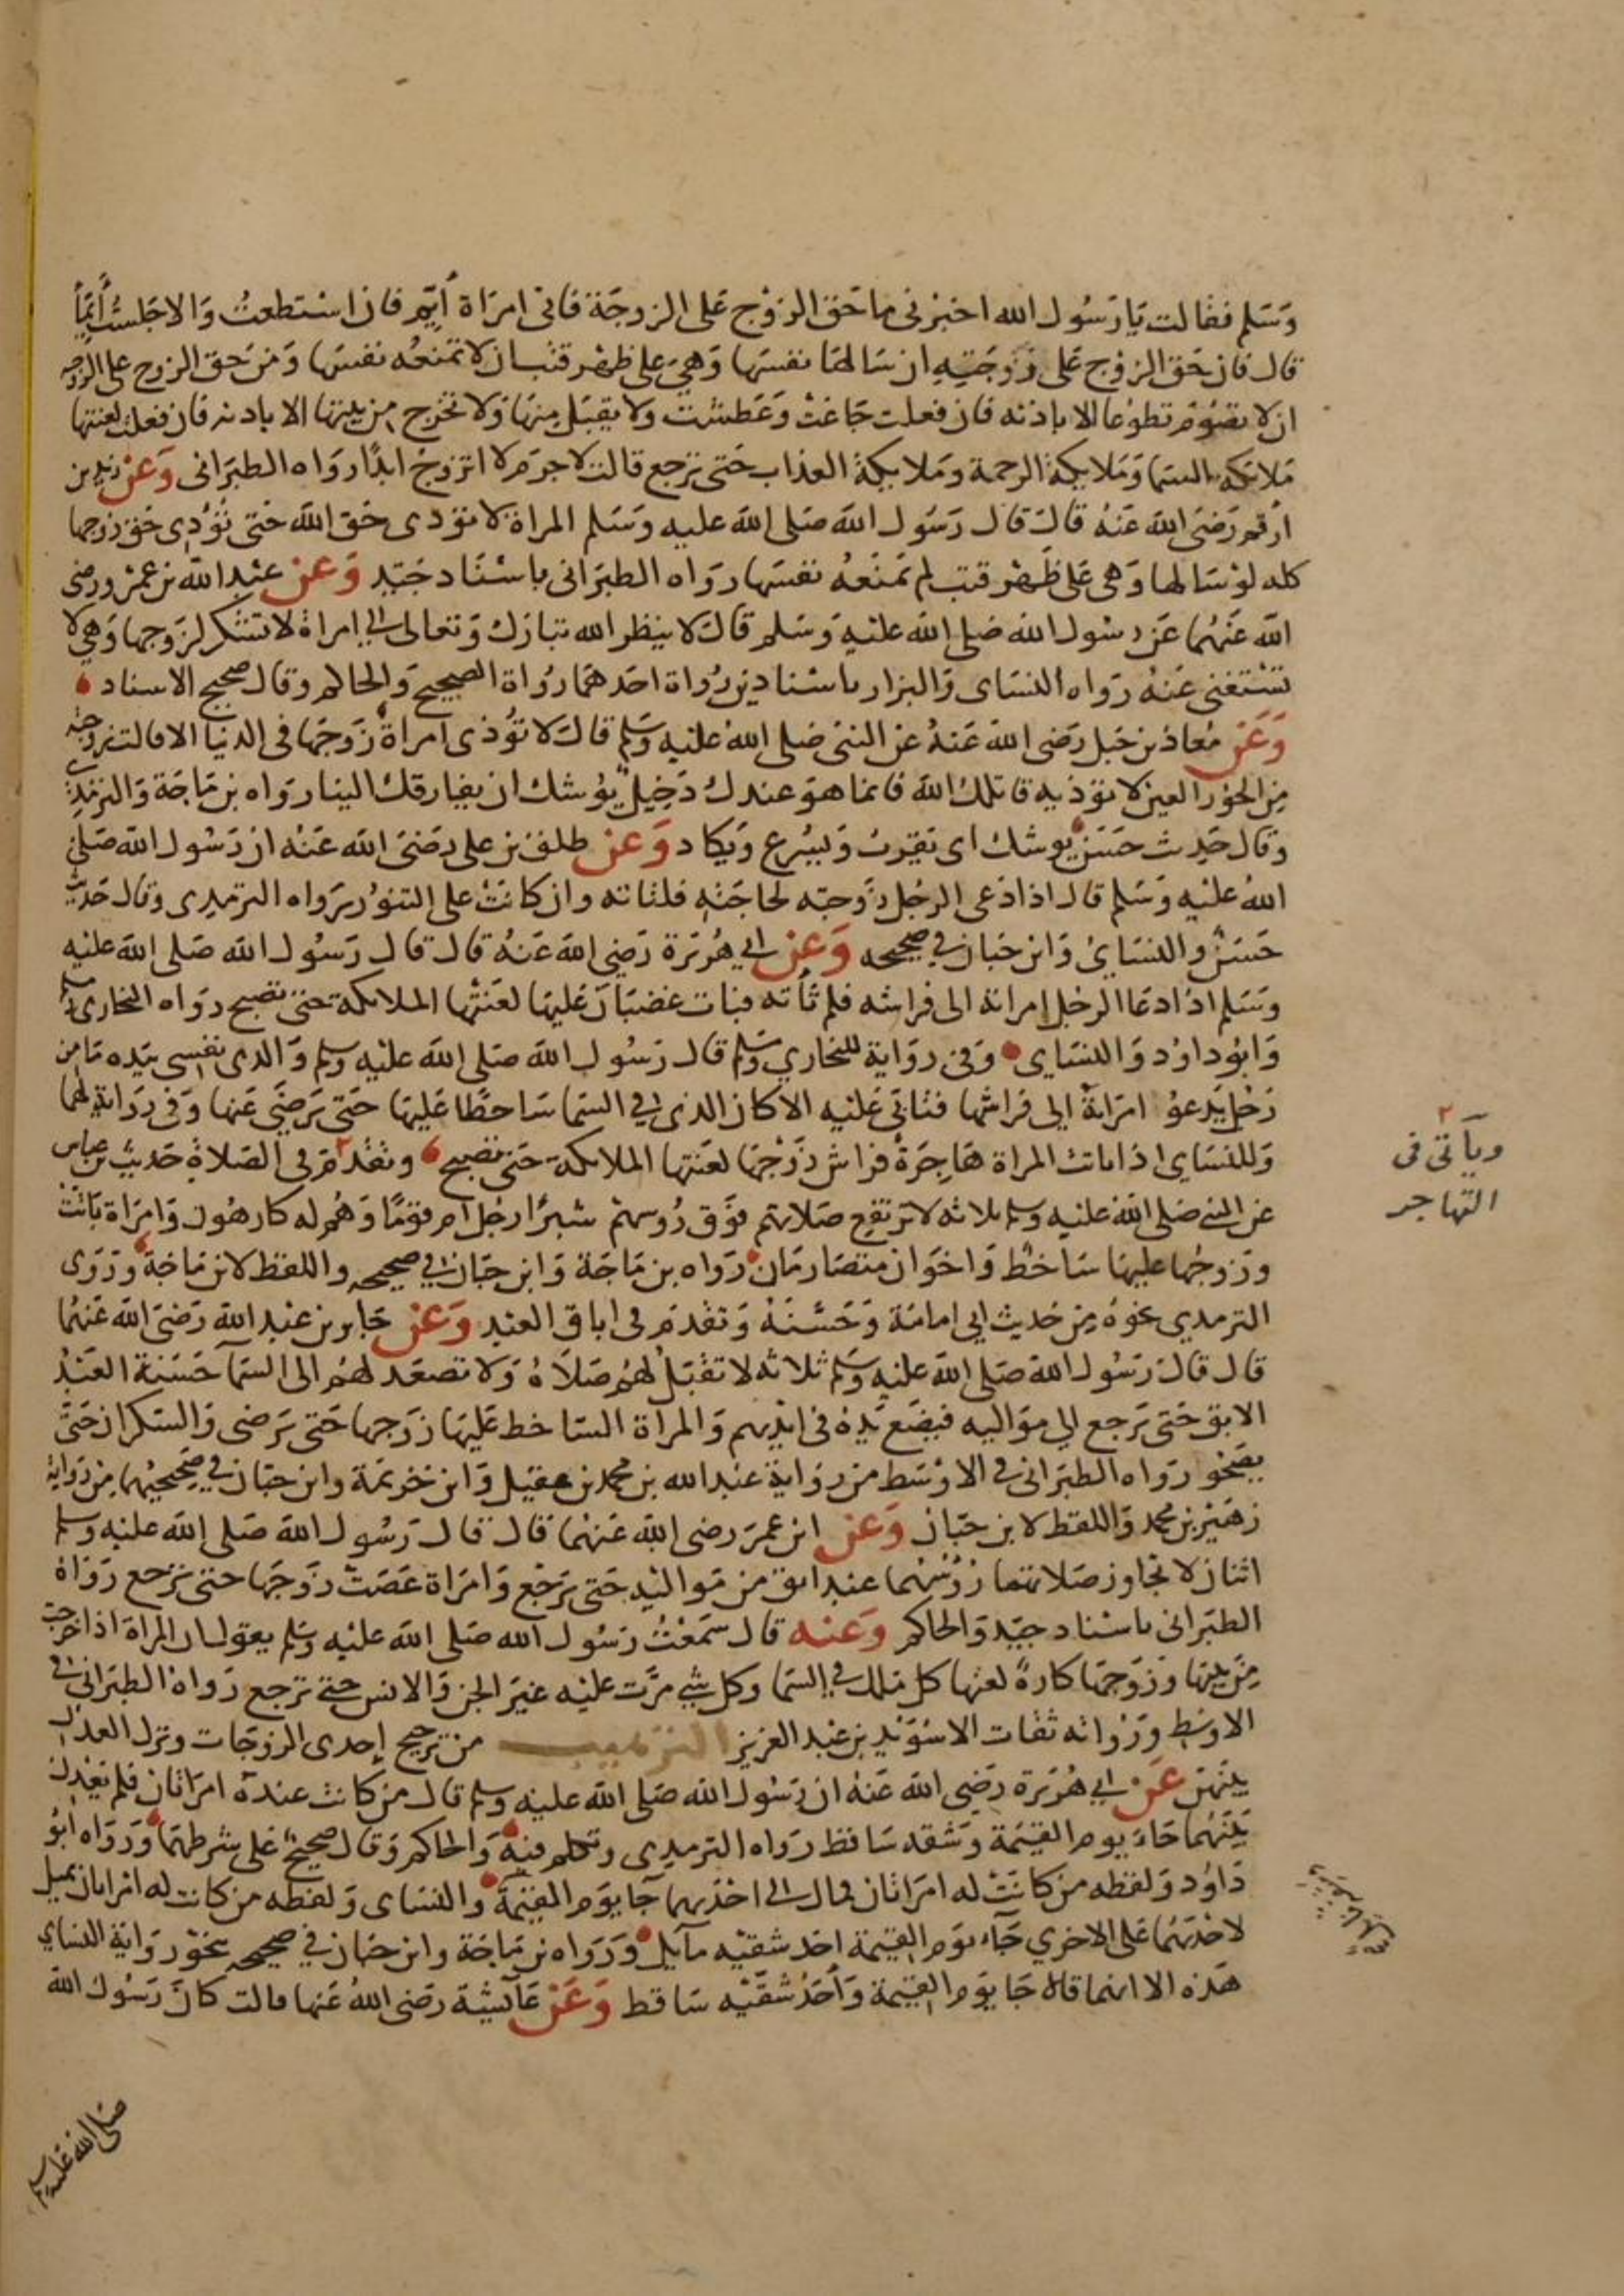 وَسَلم فقالت يَا رَسُول الله اخبرنى ما حَق الزوْج عَلى الزوجَة فانى امرَاة أيّم فان استطعتُ وَالا جَلستُ أيّماً
قال فان حَق الزوْج عَلى زوجَتِهِ ان سَالهَا نفسَهَا وَهىَ على ظهر قتب ان لا تمنَعُه نفسَهَا وَمن حَق الزوج على الزوجه
ان لا تصُوْم تطوّعا الا باذنه فان فعلت جَاعَتْ وَعَطشت ولا يقبَل منهَا وَلا تخرج من بيتها الا باذنه فان فعلت لعنتها
مَلائكة السمَا وَمَلايكة الرحمة ومَلايكةُ العذاب حَتى ترجع قالت لا جرَم لا اتزوجُ ابدًا روَاه الطبرَانى وَعن زيد بن
أرقم رَضى الله عَنهُ قال قال رَسُول الله صَلى الله عليه وَسَلم المراة لا تودى حَق الله حَتى تؤدى حَق زوجها
كله لوْ سَالها وَهى عَلى ظَهْر قتب لم تمنَعْهُ نفسَها روَاه الطبرَانى باسْنَاد جَيّد وَعن عبْد الله بن عمْرو رضى
الله عَنهُما عَن رسُول الله صَلى الله عليْهِ وَسَلم قال لا ينظر الله تبَارَك وَتعالى الى امراة لا تشكر لزَوجها وَهى لا
تسْتغنى عَنهُ روَاه النسَاى وَالبزار باسْنادين رُواة احَدهمَا رُوَاة الصحيح وَالحاكم وقال صحيح الاسناد
وَعَن مُعاذ بن جَبل رَضى الله عَنهُ عن النبى صَلى الله عليْه وَسَلم قال لا تؤذى امراة زَوجَهَا فى الدنيَا الا قالت زوجته
مِن الحوْر العين لا تؤذيه قاتلك الله فانما هوَ عندك دَخِيلٌ يُوشك ان يفارقك الينا روَاه بن مَاجَة وَالترمذى
وقال حَدِيث حَسَن يوشك اى يَقربُ وَيسْرع وَيكاد وَعن طلق بن على رَضىَ الله عَنْه ان رَسُول الله صَلى
اللهُ عليْه وَسَلم قال اذا دَعى الرجُل زَوجَته لحاجَتِهِ فلتاته وان كانَتْ على التنوُّر روَاه الترمدى وَقال حَديث
حَسَنٌ والنسَائ وَابن حبَان فى صحيحه وَعن ابى هُريْرة رَضى الله عَنهُ قال قال رَسُول الله صَلى الله عليْه
وسَلم اذا دَعَا الرجل امراته الى فراشه فلم تأته فبَات غضبَان عَليهَا لعَنتْها الملايكة حَتى تصبح روَاه البخارى ومسلم
وَابُو داوُد وَالنسَاى وَفى روَاية للبخاري وَمسلم قال رَسُول الله صَلى الله عليْه وَسلم وَالذى نفسى بيَده مَا من
رَجُل يَدعوُ امرَاتهُ الى فراشها فتابى عَليْه الا كان الذى فى السمَا سَاخطًا عَليهَا حَتى يَرضَى عَنها وَفى روَاية لهما
وَللنسَاى اذا باتت المراة هَاجرَةً فراش زَوْجهَا لعَنتها الملايكة حَتى تصبح وتقدّم فى الصَلاة حَديث بن عباس
عَن النبى صَلى الله عليه وسلم ثلاثه لا ترتفع صَلاتهم فوَق رُوسهم شبْرًا رجُل أم قومًا وَهُم له كارهُون وَامرَاة بَاتتْ
وزَوجُها عليهَا سَاخطٌ وَاخوَان متصَارمَان روَاه بن مَاجَة وَابن حبَان فى صحيحه واللفظ لابن مَاجَة وَرَوى
الترمدى نحوَهُ مِن حَديث ابى امامَة وَحَسَّنَهُ وَتقدمَ فى اباق العبْد وَعَن جَابر بن عبْد الله رَضىَ الله عَنهُما
قال قال رَسُول الله صَلى الله عليْه وَسَلم ثلاثه لا تقبَل لهُم صَلاَةُ وَلا تصعَد لهُم الى السمَآ حَسَنة العَبْدُ
الابق حَتى يَرجع الى موَاليه فيضَع يَدهُ فى ايْديهم وَالمرآة السَاخط عَليهَا زَوجهَا حَتى يَرضى وَالسَكران حَتىَّ
يصَحُو روَاه الطبرَانى فى الاوْسَط من روَاية عبْد الله بن محمد بن عقيل وَابن خزيمَة وابن حبَان فى صَحيحيْهما مِن روَاية
زهَيْر بن محمد وَاللفظ لابن حبَان وَعَن ابن عمرَ رضى الله عَنهُما قال قال رَسُول الله صَلى الله عليْه وسلم
اثنان لا تجاوز صَلاتهما رُؤسَهُما عبْد ابق من مَواليْه حَتى يَرجع وَامرَاة عَصَتْ زَوجَهَا حتى ترجع روَاهُ
الطبَرانى باسْناد جيّد وَالحاكم وَعنه قال سَمعْتُ رَسُول الله صَلى الله عليْه وسَلم يقول ان المراة اذا خرجت
مِن بيتها وَزَوجهَا كارهٌ لعنها كل ملك فى السمَا وكل شى مرَّت عليْه غيرَ الجن وَالانس حتى ترجع روَاهُ الطبَرانى فى
الاوسَط وَرُواته ثقات الا سُوَيْد بن عبْد العزيز الترهيب من ترجيح إحدى الزوجَات وترك العدل
بيْنهن عَن ابى هُريْرة رَضى الله عَنهُ ان رَسُول الله صَلى الله عليه وسلم قال من كانت عندهُ امرَاتان فلم يَعْدل
بيْنَهُمَا جَاءَ يوم القيمَة وَشقه سَاقط روَاه الترمدى وتكلم فيهِ وَالحاكم وقال صحيحٌ عَلى شرطهمَا وَرَوَاه ابُو
دَاوُد وَلفظه من كانَتْ له امرَاتان فمال الى احْدَيهما جَا يوَم القيمَة وَالنسَاى وَلفظه من كانت له امراتان يميل
لاحْدَيهُما عَلى الاخري جَآء يوَم القيمَة احَد شقيْه مآيل وَرَوَاه بن مَاجَة وابن حبَان فى صحيحه بنحْو روَاية النسَاي
هَذه الا انهما قالا جَا يوَم القيمَة وَاَحَدُ شقَّيْه سَاقط وَعَن عَآئشَة رَضى اللهُ عَنها قالت كانَ رَسُول الله
٢
ويأتى فى
التهاجر
صَلى الله عليه وسلم